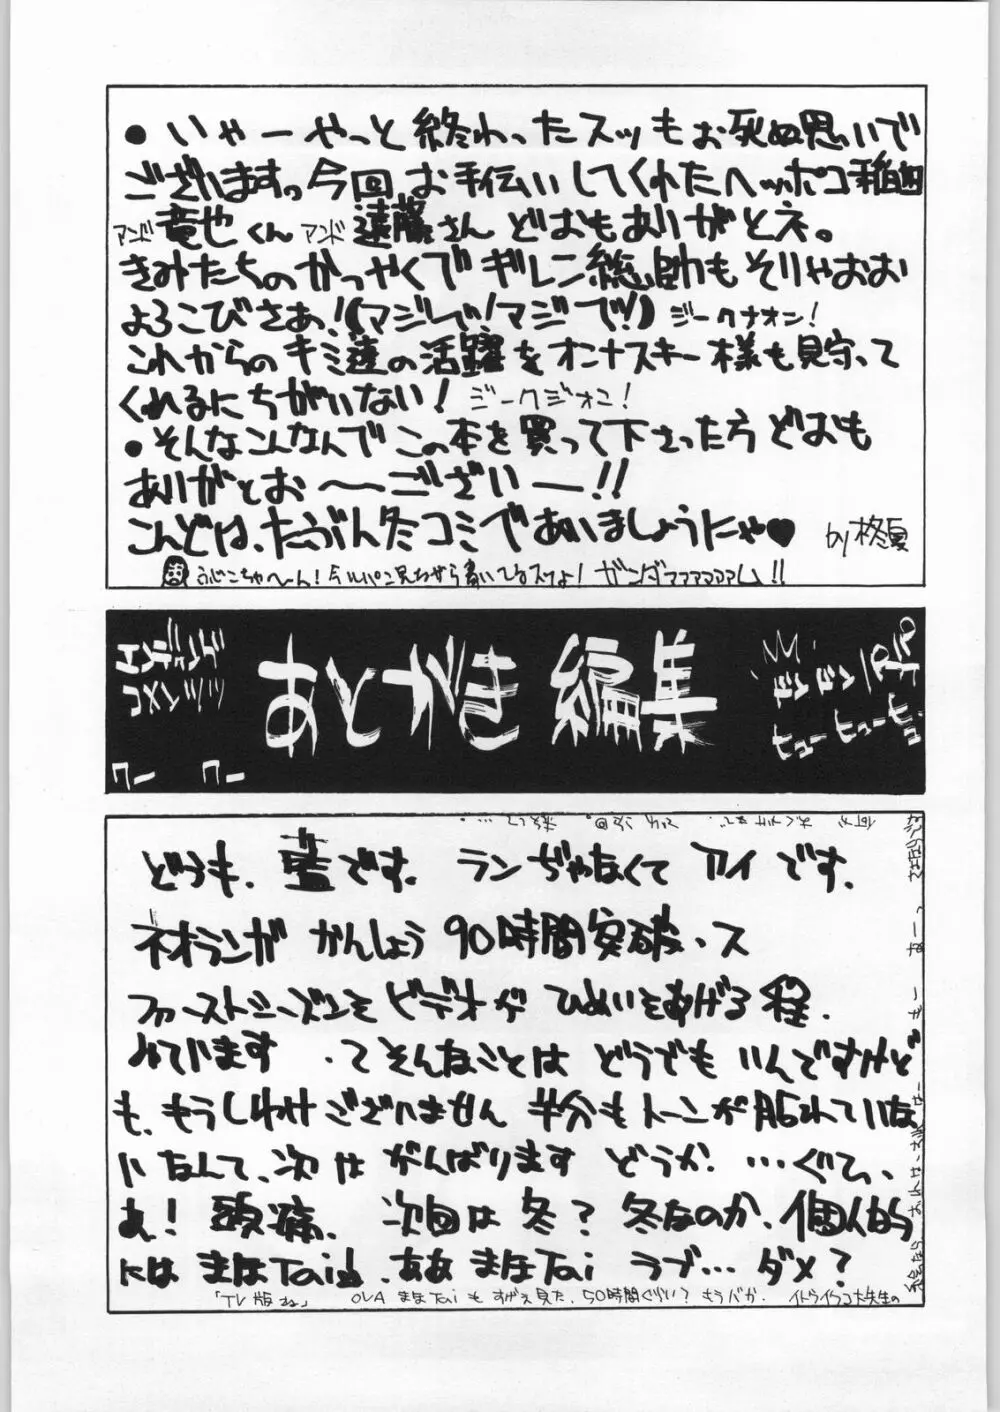 ●いやーやっと終わったスッもお死ぬ思いで
ございますっ今回、お手伝いしてくれたヘッポコ稲田
アンド竜也くんアンド遠藤さんどおもありがとネ。
きみたちのかつやくでギレン総帥もそりゃおお
よろこびさぁ!(マジレで!マジで!!)ジークナオン!
これからのキミ達の活躍をオンナスキー様も見守って
くれるにちがいない!ジークジオン!
●そんなこんなんでこの本を買って下さった方どおも
ありがとお〜〜ござい―!!
こんどは、たぶん冬コミであいましょうにゃ♥ by柊夏
ふじこちゃへ〜ん!今ルパン見ながら書いてるスよ!ガンダァァァァァム!!
エンディング
コメンツツ
あとがき編集
ドンドンパフパフ
ヒューヒューヒュー
ワー ワー
どうも、藍です。ランぢゃなくてアイです。
ネオランガかんしょう90時間突破、ス
ファーストシーズンをビデオがひめいをあげる程、
みています、ってそんなことはどうでもいんですけど
も、もうしわけございません半分もトーンが貼れていな
いなんて、次はがんばりますどうか…ぐてっ、
あ!頭痛、次回は冬?冬なのか、個人的
にはまほTaiも、ああまほTaiラブ…ダメ?
「TV版ね」OVAまほTaiもすげえ見た、50時間ぐらい?もうバカ、